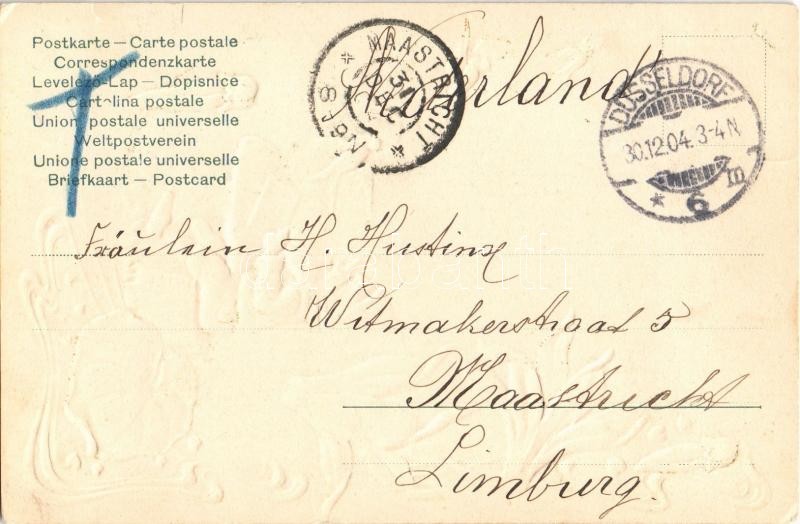 Postkarte — Carte postale
Correspondenzkarte
Levelező-Lap — Dopisnice
Cartolina postale
Union postale universelle
Weltpostverein
Unione postale universelle
Briefkaart — Postcard
MAASTRICHT
31
DEC
8-9N
Nederland
DÜSSELDORF
30.12.04. 3-4N.
* 6 m
Fräulein H. Hustinx
Witmakerstraat 5
Maastricht
Limburg.